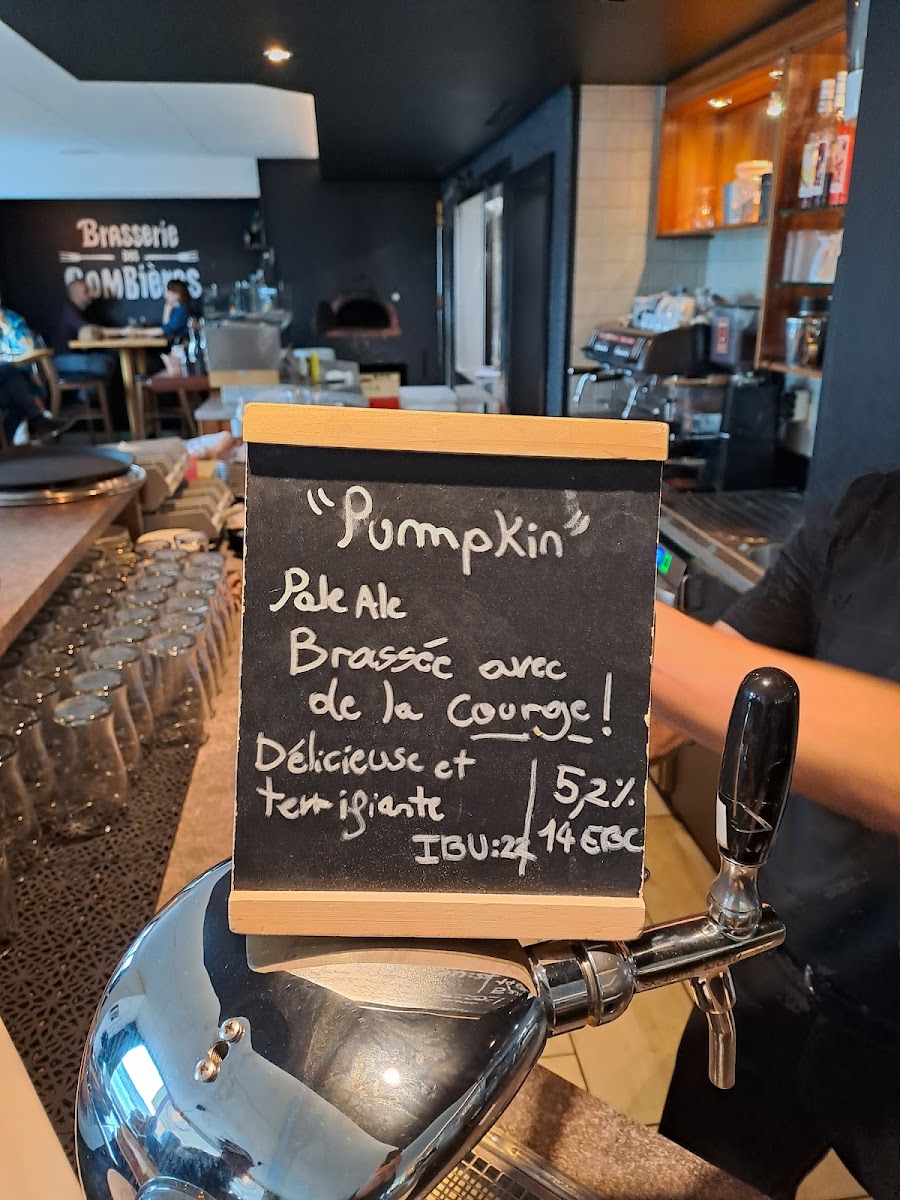 Brasserie
DES
ComBières
"Pumpkin"
Pale Ale
Brassée avec
de la courge!
Délicieuse et
terrifiante
5,2%
IBU:22
14 EBC